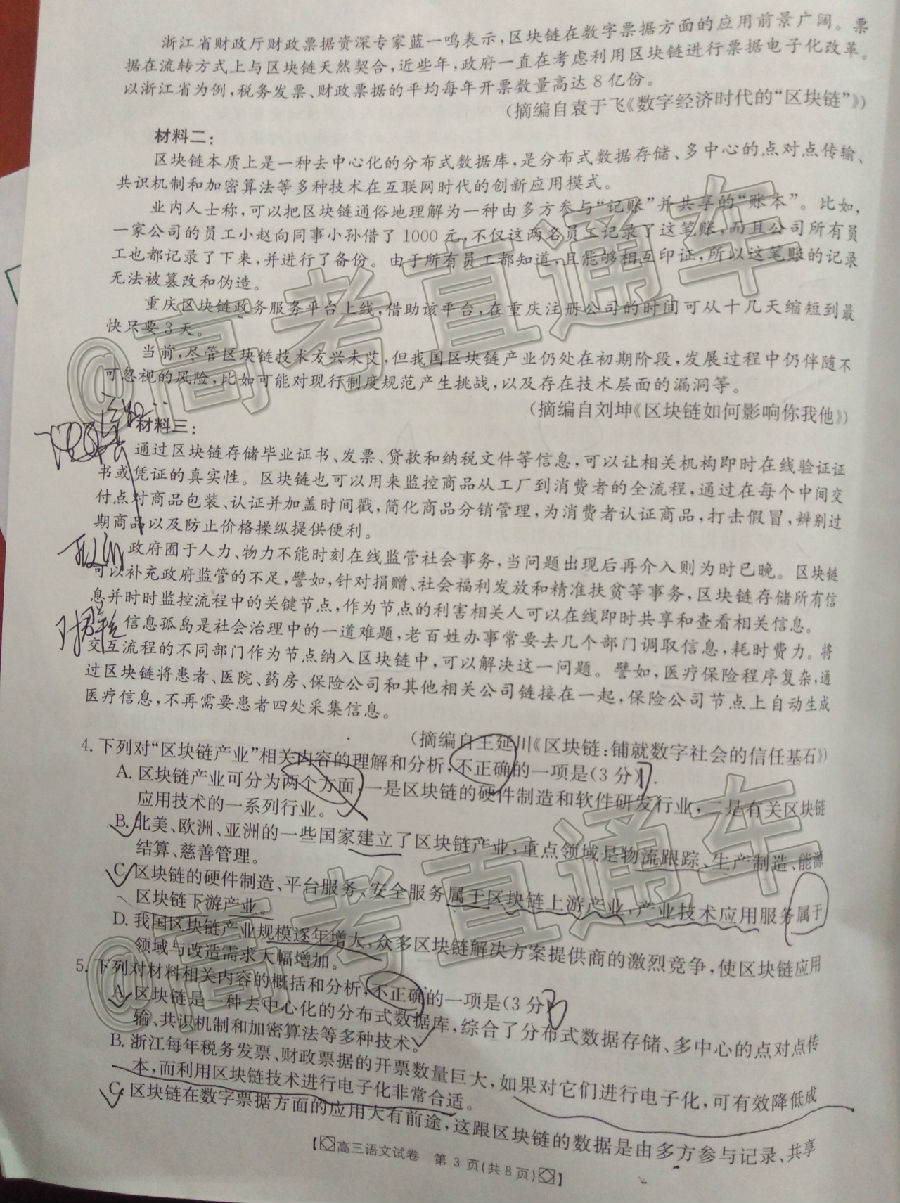 浙江省财政厅财政票据资深专家蓝一鸣表示,区块链在数字票据方面的应用前景广阔。票
据在流转方式上与区块链天然契合,近些年,政府一直在考虑利用区块链进行票据电子化改革。
以浙江省为例,税务发票、财政票据的平均每年开票数量高达8亿份。
(摘编自袁于飞《数字经济时代的“区块链”》)
材料二:
区块链本质上是一种去中心化的分布式数据库,是分布式数据存储、多中心的点对点传输、
共识机制和加密算法等多种技术在互联网时代的创新应用模式。
业内人士称,可以把区块链通俗地理解为一种由多方参与“记账”并共享的“账本”。比如,
一家公司的员工小赵向同事小孙借了1000元,不仅这两名员工记录了这笔账,而且公司所有员
工也都记录了下来,并进行了备份。由于所有员工都知道,且能够相互印证,所以这笔账的记录
无法被篡改和伪造。
重庆区块链政务服务平台上线,借助该平台,在重庆注册公司的时间可从十几天缩短到最
快只要3天。
当前,尽管区块链技术方兴未艾,但我国区块链产业仍处在初期阶段,发展过程中仍伴随不
可忽视的风险,比如可能对现行制度规范产生挑战,以及存在技术层面的漏洞等。
(摘编自刘坤《区块链如何影响你我他》)
材料三:
通过区块链存储毕业证书、发票、贷款和纳税文件等信息,可以让相关机构即时在线验证证
书或凭证的真实性。区块链也可以用来监控商品从工厂到消费者的全流程,通过在每个中间交
付点对商品包装、认证并加盖时间戳,简化商品分销管理,为消费者认证商品,打击假冒,辨别过
期商品以及防止价格操纵提供便利。
政府囿于人力、物力不能时刻在线监管社会事务,当问题出现后再介入则为时已晚。区块链
可以补充政府监管的不足,譬如,针对捐赠、社会福利发放和精准扶贫等事务,区块链存储所有信
息并时时监控流程中的关键节点,作为节点的利害相关人可以在线即时共享和查看相关信息。
信息孤岛是社会治理中的一道难题,老百姓办事常要去几个部门调取信息,耗时费力。将
交互流程的不同部门作为节点纳入区块链中,可以解决这一问题。譬如,医疗保险程序复杂,通
过区块链将患者、医院、药房、保险公司和其他相关公司链接在一起,保险公司节点上自动生成
医疗信息,不再需要患者四处采集信息。
(摘编自王延川《区块链:铺就数字社会的信任基石》)
4.下列对“区块链产业”相关内容的理解和分析,不正确的一项是(3分)
A.区块链产业可分为两个方面,一是区块链的硬件制造和软件研发行业,二是有关区块链
应用技术的一系列行业。
B.北美、欧洲、亚洲的一些国家建立了区块链产业,重点领域是物流跟踪、生产制造、能源
结算、慈善管理。
C.区块链的硬件制造、平台服务、安全服务属于区块链上游产业,产业技术应用服务属于
区块链下游产业。
D.我国区块链产业规模逐年增大,众多区块链解决方案提供商的激烈竞争,使区块链应用
领域与改造需求大幅增加。
5.下列对材料相关内容的概括和分析,不正确的一项是(3分)
A.区块链是一种去中心化的分布式数据库,综合了分布式数据存储、多中心的点对点传
输、共识机制和加密算法等多种技术。
B.浙江每年税务发票、财政票据的开票数量巨大,如果对它们进行电子化,可有效降低成
本,而利用区块链技术进行电子化非常合适。
C.区块链在数字票据方面的应用大有前途,这跟区块链的数据是由多方参与记录、共享
【高三语文试卷 第3页(共8页)】
@高考直通车
@高考直通车